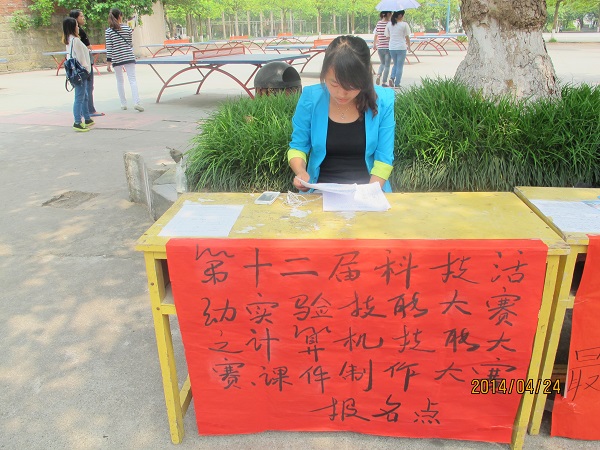 第十二届科技活
动实验技联大赛
之计算机技联大
赛课件制作大赛
报名点
2014/04/24
最